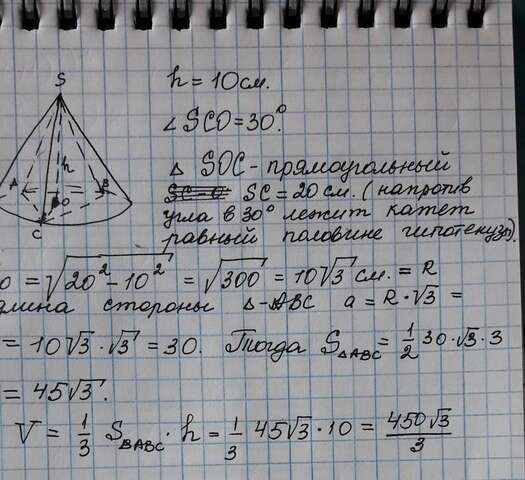 S
A
C
O
B
h
h = 10 см.
∠ SCO = 30°.
Δ SOC - прямоугольный
SC = 20 см. (напротив
угла в 30° лежит катет
равный половине гипотенузы).
O = √20² - 10² = √300 = 10√3 см. = R
стороны Δ-ABC a = R · √3 =
= 10√3 · √3 = 30. Тогда S ΔABC = 1/2 30 · √3 · 3
= 45√3.
V = 1/3 S ΔABC · h = 1/3 45√3 · 10 = 450√3/3